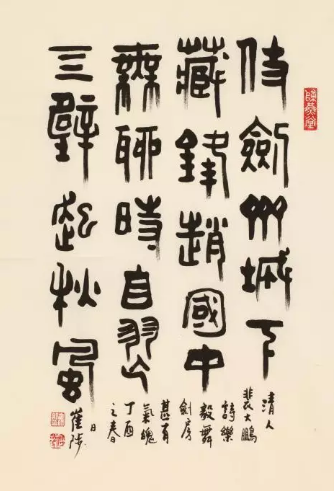 劍州城下
藏鋒趙國中
無聊時自
三壁起秋風
清人
裴大鵬
詩樂
毅舞
劍房
甚有
氣魄
丁酉
之春
日
崔陟